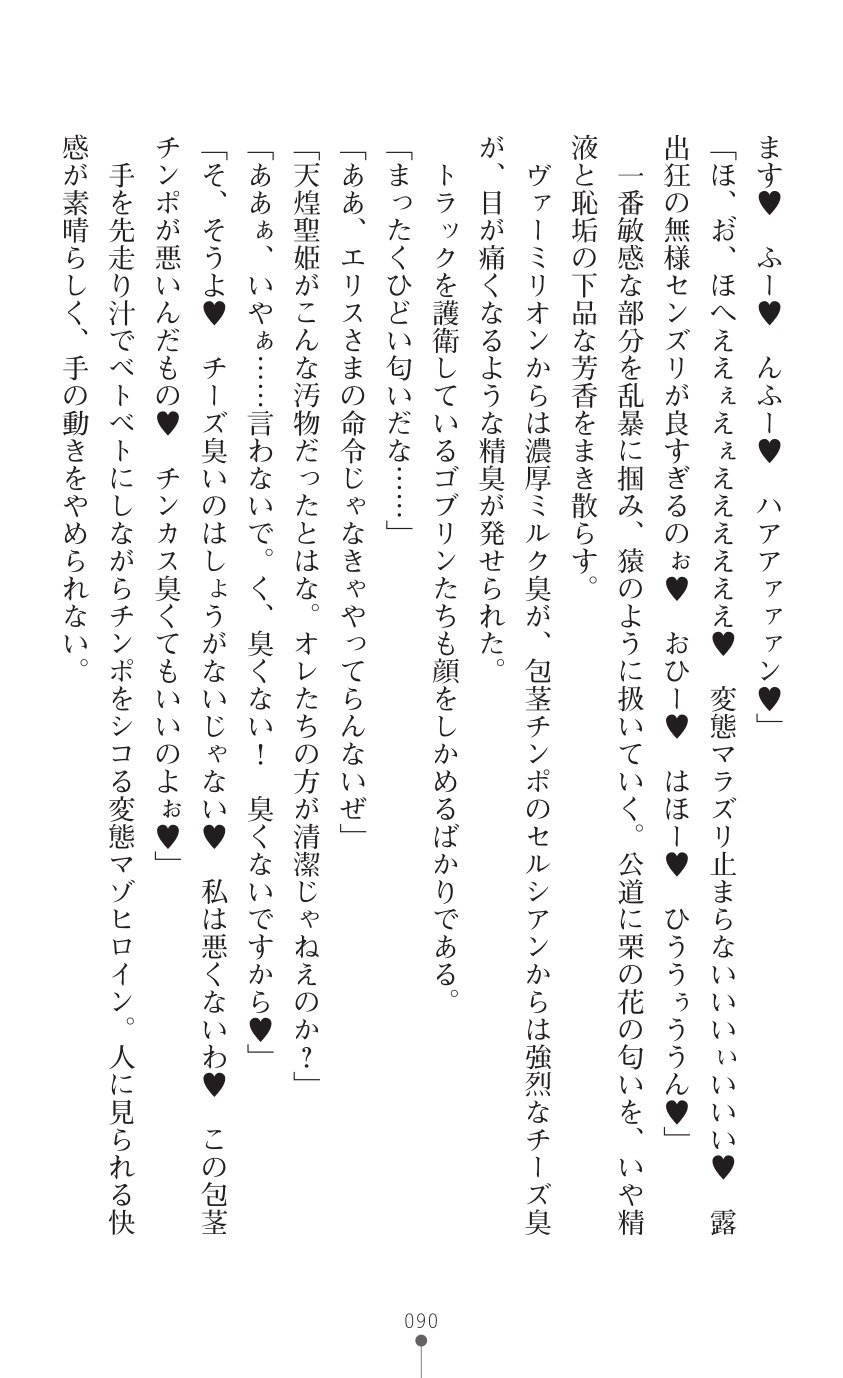 ます♥　ふー♥　んふー♥　ハアァァァン♥」
「ほ、お゛、ほへええぇえぇええええええ♥　変態マラズリ止まらないいいぃいいい♥　露
出狂の無様センズリが良すぎるのぉ♥　おひー♥　はほー♥　ひううぅううん♥」
　一番敏感な部分を乱暴に掴み、猿のように扱いていく。公道に栗の花の匂いを、いや精
液と恥垢の下品な芳香をまき散らす。
　ヴァーミリオンからは濃厚ミルク臭が、包茎チンポのセルシアンからは強烈なチーズ臭
が、目が痛くなるような精臭が発せられた。
　トラックを護衛しているゴブリンたちも顔をしかめるばかりである。
「まったくひどい匂いだな……」
「ああ、エリスさまの命令じゃなきゃやってらんないぜ」
「天煌聖姫がこんな汚物だったとはな。オレたちの方が清潔じゃねえのか？」
「ああぁ、いやぁ……言わないで。く、臭くない！　臭くないですから♥」
「そ、そうよ♥　チーズ臭いのはしょうがないじゃない♥　私は悪くないわ♥　この包茎
チンポが悪いんだもの♥　チンカス臭くてもいいのよぉ♥」
　手を先走り汁でベトベトにしながらチンポをシコる変態マゾヒロイン。人に見られる快
感が素晴らしく、手の動きをやめられない。
090